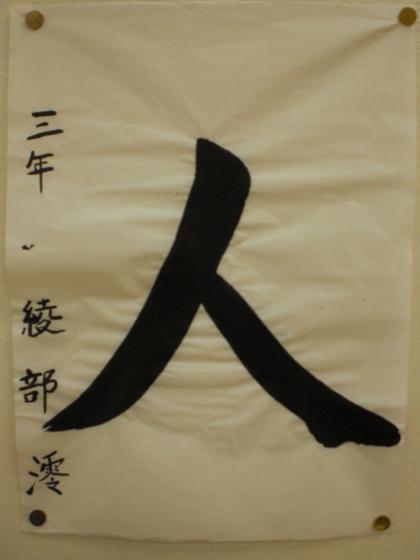 人
三年 綾部澪